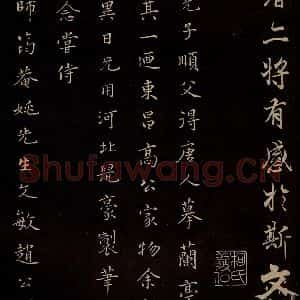 者亦將有感於斯文
兄子順父得唐人摹蘭亭
其一迺東昌高公家物余
異日兄用河北鼠豪製筆
念嘗侍
師筠菴姚先生文敏趙公
Shufawang.CN